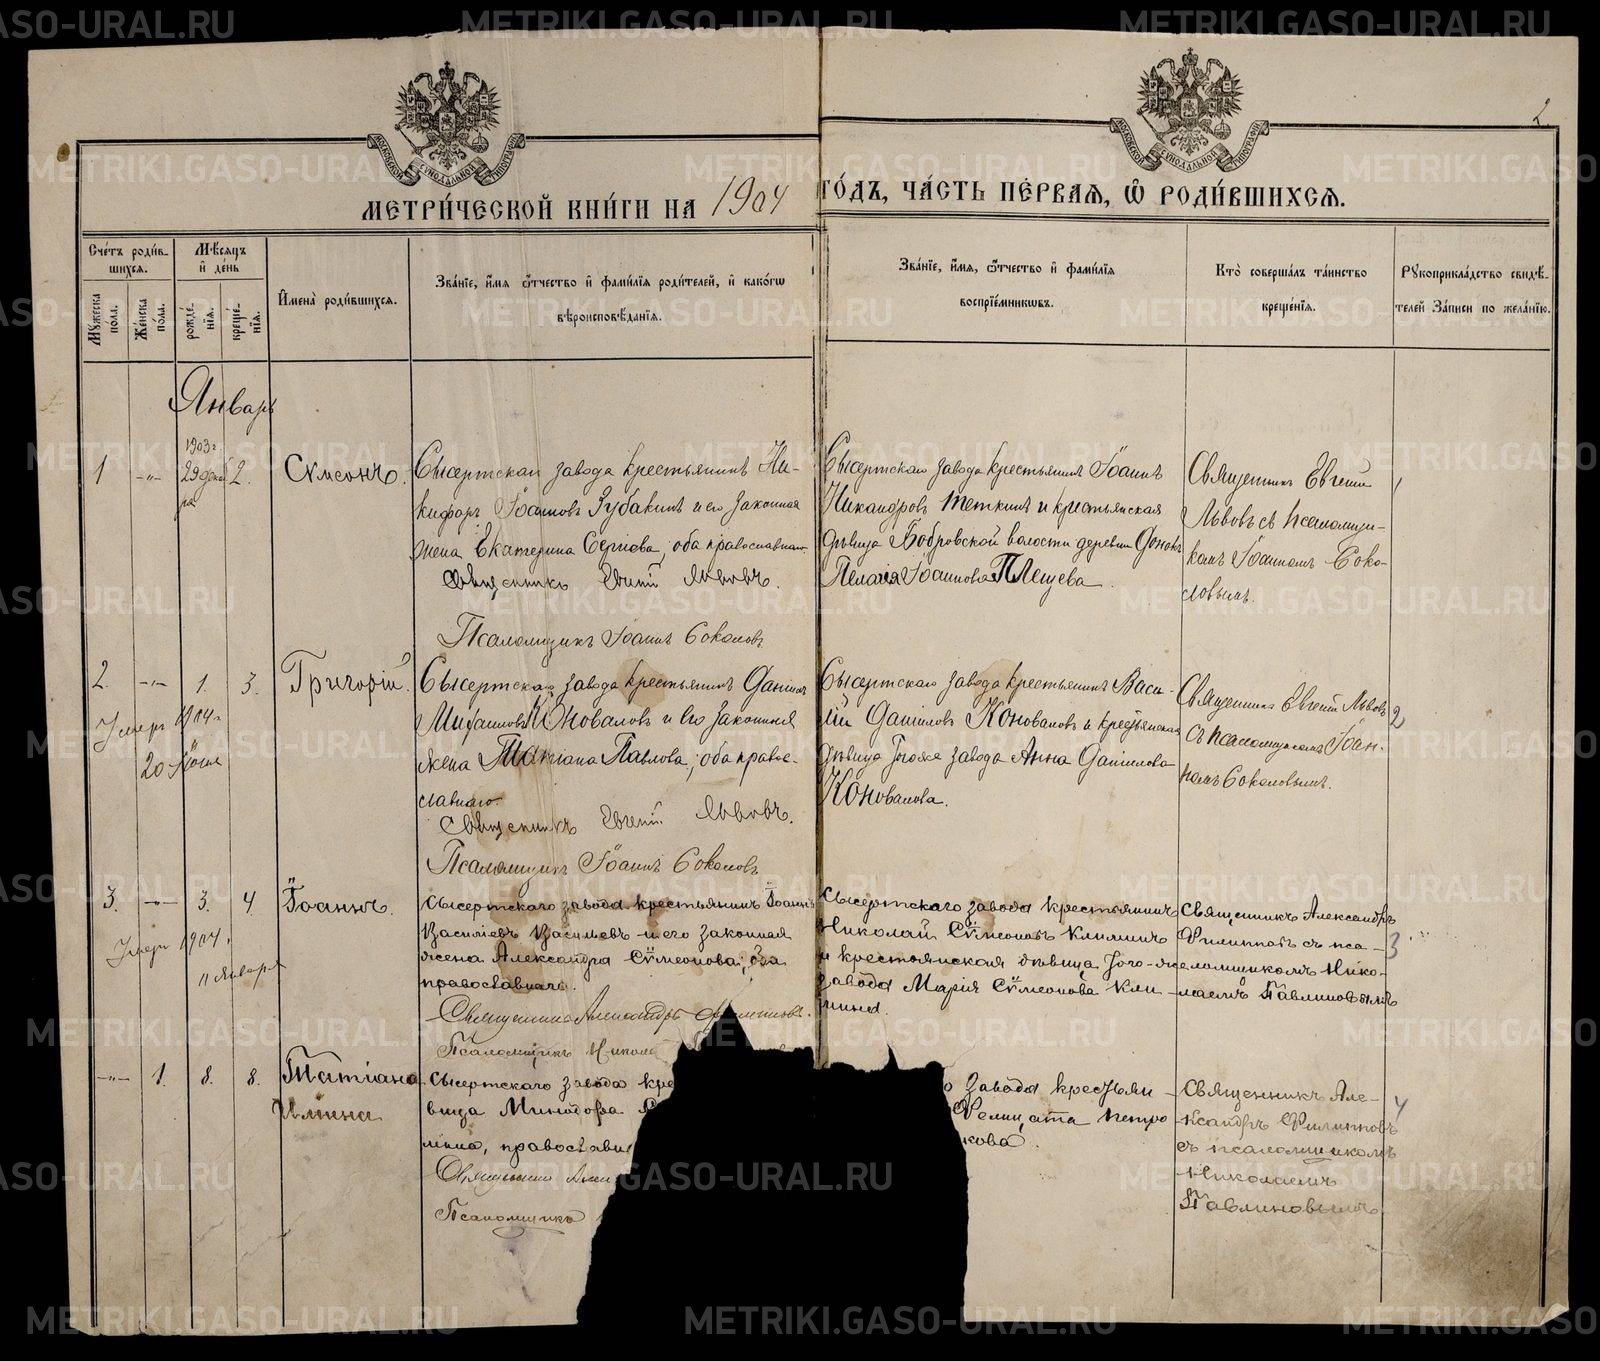 METRIKI.GASO-URAL.RU
2
МОСКОВСКОЙ СѴНОДАЛЬНОЙ ТИПОГРАФІИ
МОСКОВСКОЙ СѴНОДАЛЬНОЙ ТИПОГРАФІИ
МЕТРИ́ЧЕСКОЙ КНИ́ГИ НА 1904 ГО́ДЪ, ЧА́СТЬ ПЕ́РВАЯ, Ѡ҆ РОДИ́ВШИХСЯ.
Сче́тъ роди́в-
шихся.
Му́жеска по́ла.
Же́нска по́ла.
Мѣ́сяцъ
и҆ де́нь
рожде́-
нїя.
креще́-
нїя.
И҆мена̀ роди́вшихся.
Зва́нїе, и҆́мя ѻ҆́тчество и҆ фами́лїя роди́телей, и҆ како́гѡ
вѣроисповѣ́данїя.
Зва́нїе, и҆́мя, ѻ҆́тчество и҆ фами́лїя
воспрїе́мникѡвъ.
Кто̀ соверша́лъ та́инство
креще́нїя.
Рꙋкоприкла́дство свидѣ́-
телей за́писи по жела́нїю.
Январь
1
-"-
1903 г.
29 декаб
ря
2.
Сѵмеонъ.
Сысертскаго завода крестьянинъ Ни-
кифоръ Іоанновъ Зубакинъ и его законная
жена Екатерина Сергіева, оба православнаго
Священникъ Евгеній Львовъ.
Псаломщикъ Іоаннъ Соколовъ
Сысертскаго завода крестьянинъ Іоаннъ
Никандровъ Теткинъ и крестьянская
дѣвица Бобровской волости деревни
Пелагія Іоаннова Плещева.
Священникъ Евгеній
Львовъ съ псаломщи-
комъ Іоанномъ Соко-
ловымъ.
1
2.
-"-
1.
3.
Григорій.
Умеръ 1904 г.
20 Іюля
Сысертскаго завода крестьянинъ Даніилъ
Михаиловъ Коноваловъ и его законная
жена Татіана Павлова; оба право-
славнаго
Священникъ Евгеній Львовъ.
Псаломщикъ Іоаннъ Соколовъ
Сысертскаго завода крестьянинъ Васи-
лій Даніиловъ Коноваловъ и крестьянская
дѣвица того-же завода Анна Даніилова
Коновалова.
Священникъ Евгеній Львовъ
съ псаломщикомъ Іоан-
номъ Соколовымъ.
2
3.
-"-
3.
4
Іоаннъ.
Умеръ 1904 г.
11 Января
Сысертскаго завода крестьянинъ Іоаннъ
Василіевъ Васильевъ и его законная
жена Александра Сѵмеонова; оба
православнаго.
Священникъ Александръ Филипповъ.
Псаломщикъ Никола
Сысертскаго завода крестьянинъ
Николай Сѵмеоновъ Климинъ
и крестьянская дѣвица того-же
завода Марія Сѵмеонова Кли-
мина.
Священникъ Александръ
Филипповъ съ пса-
ломщикомъ Нико-
лаемъ Павлиновымъ
3
-"-
1.
8.
8.
Татіана
Сысертскаго завода кре
вица Минодора
мина, православн
Священникъ Алек
Псаломщикъ
о завода крестьян
Фелицата Петро
кова.
Священникъ Але-
ксандръ Филипповъ
съ псаломщикомъ
Николаемъ
Павлиновымъ.
4